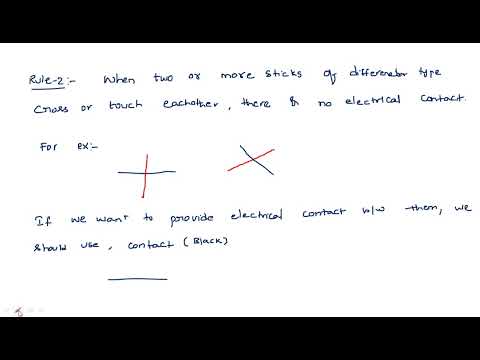 Rule-2:- When two or more sticks of different type
cross or touch eachother, there is no electrical contact.
For ex:-
If we want to provide electrical contact b/w them, we
should use, contact (Black)